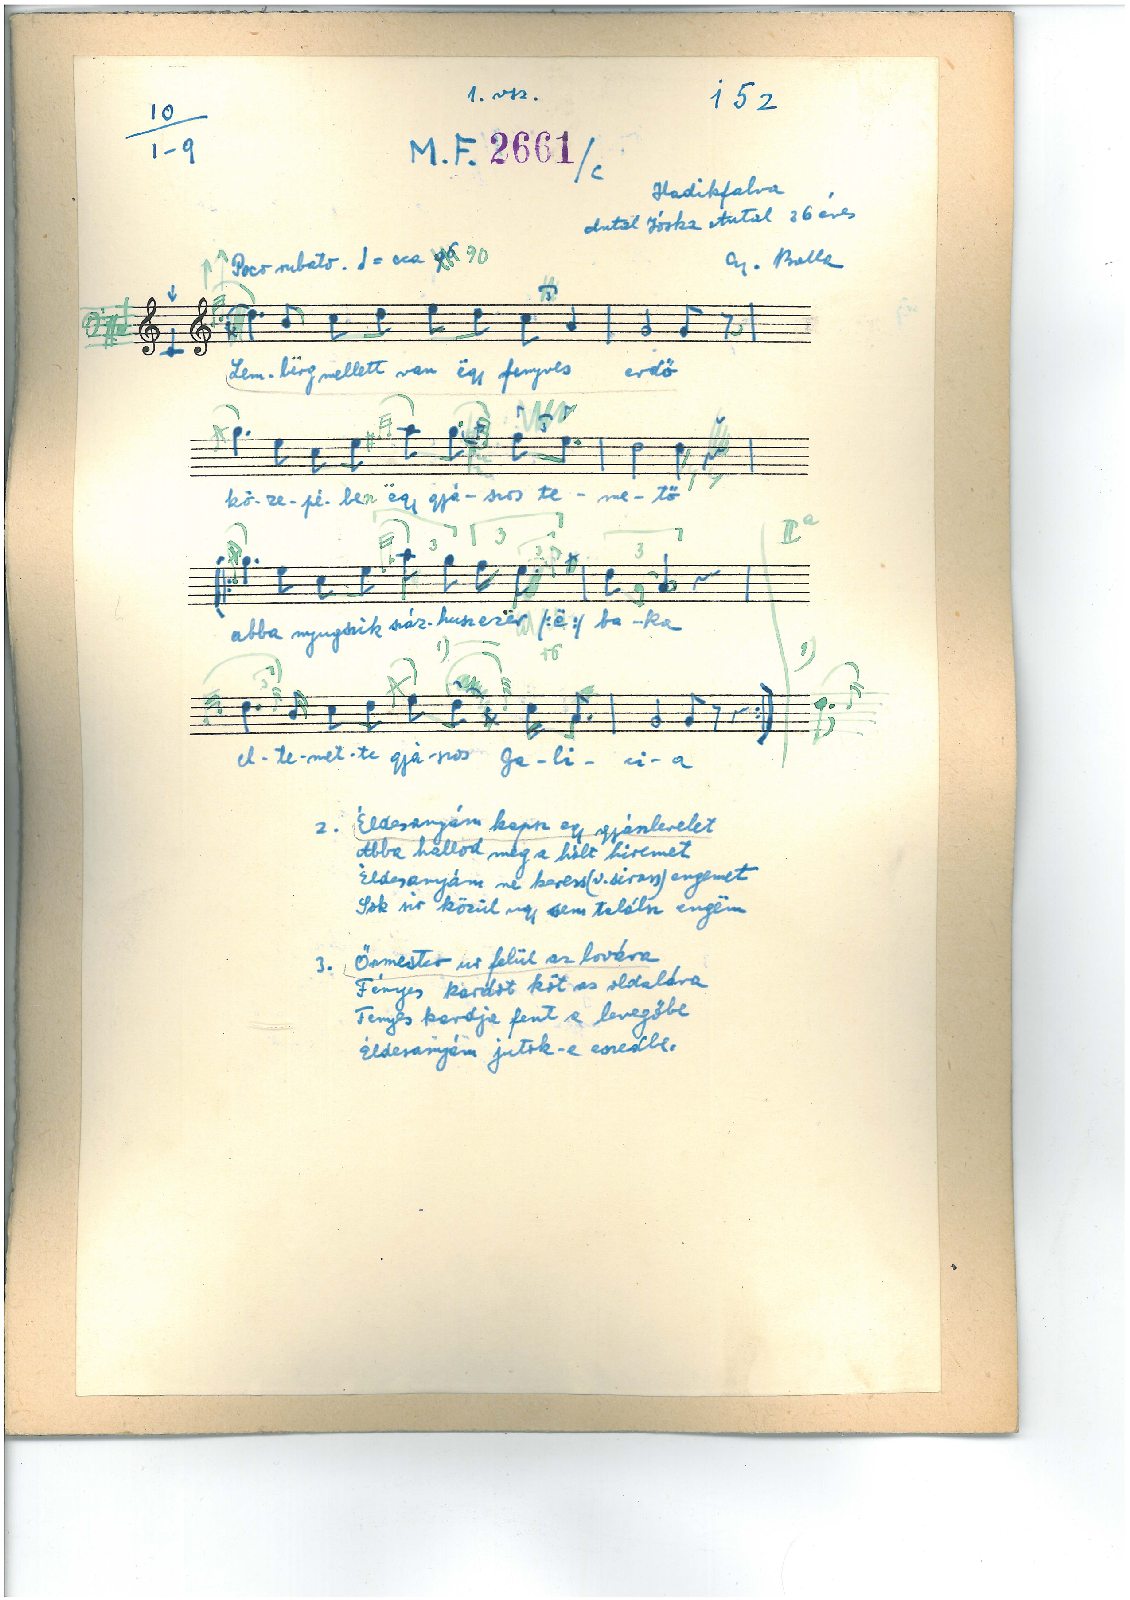 1. vsz.
i 52
10
1-9
M.F. 2661/c
Hadikfalva
Antal Jóska Antal 26 éves
Gy. Balla
Poco rubato. = cca 90
Lem-bërg mellett van ëgy fenyves erdő
kö-ze-pé-ben ëgy gyá-szos te-me-tő
IIa
3 3 3 3
abba nyugszik száz-huszezër /:ë:/ ba-ka
+6
1)
3
1)
el-te-met-te gyá-szos Ga-li-ci-a
2. Éldesanyám kapsz egy gyászlevelet
Abba hallod meg a hólt hiremet
Éldesanyám ne keress (v. sirass) engemet
Sok sir közül ugy sem találsz engëm
3. Őrmester ur felül az lovára
Fényes kardot köt az oldalára
Fényes kardja fent a levegőbe
Éldesanyám jutok-e eszedbe.